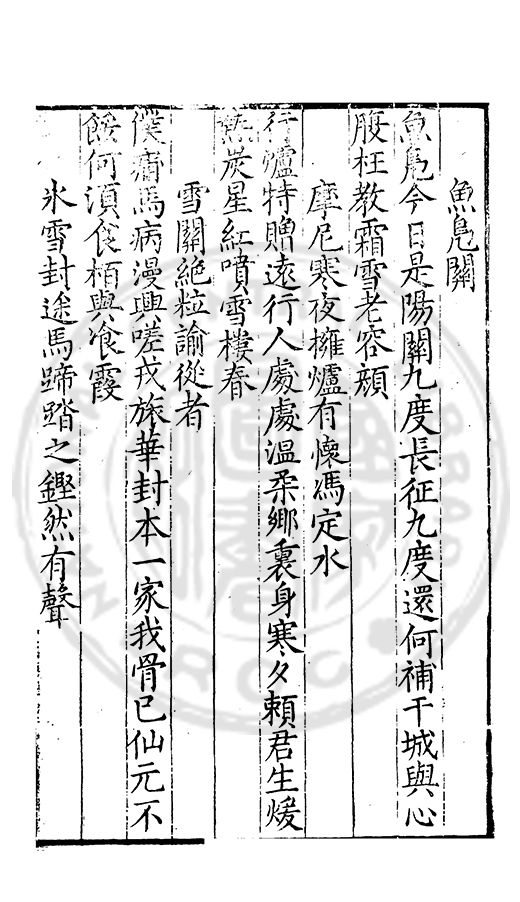 魚鳧關
魚鳧今日是陽關九度長征九度還何補干城與心
腹枉教霜雪老容顏
摩尼寒夜擁爐有懷馮定水
行爐特贈遠行人處處溫柔鄉裏身寒夕賴君生煖
炭星紅噴雪樓春
雪關絶粒諭從者
僕痡馬病漫興嗟戎旅華封本一家我骨已仙元不
餒何須食栢與飡霞
氷雪封途馬蹄踏之鏗然有聲